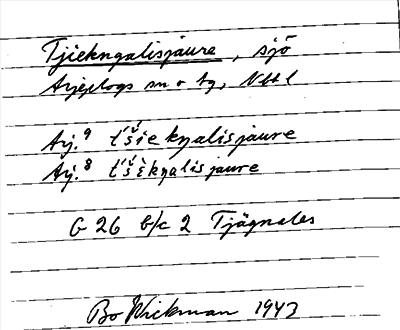 Tjiekngalisjaure, sjö
Arjeplogs sn o tg, Nbtl
Arj.9 t'š́iekŋalisjaure
Arj.8 t'š́ìekŋalisjaure
G 26 b/c 2 Tjägnales
Bo Wickman 1943